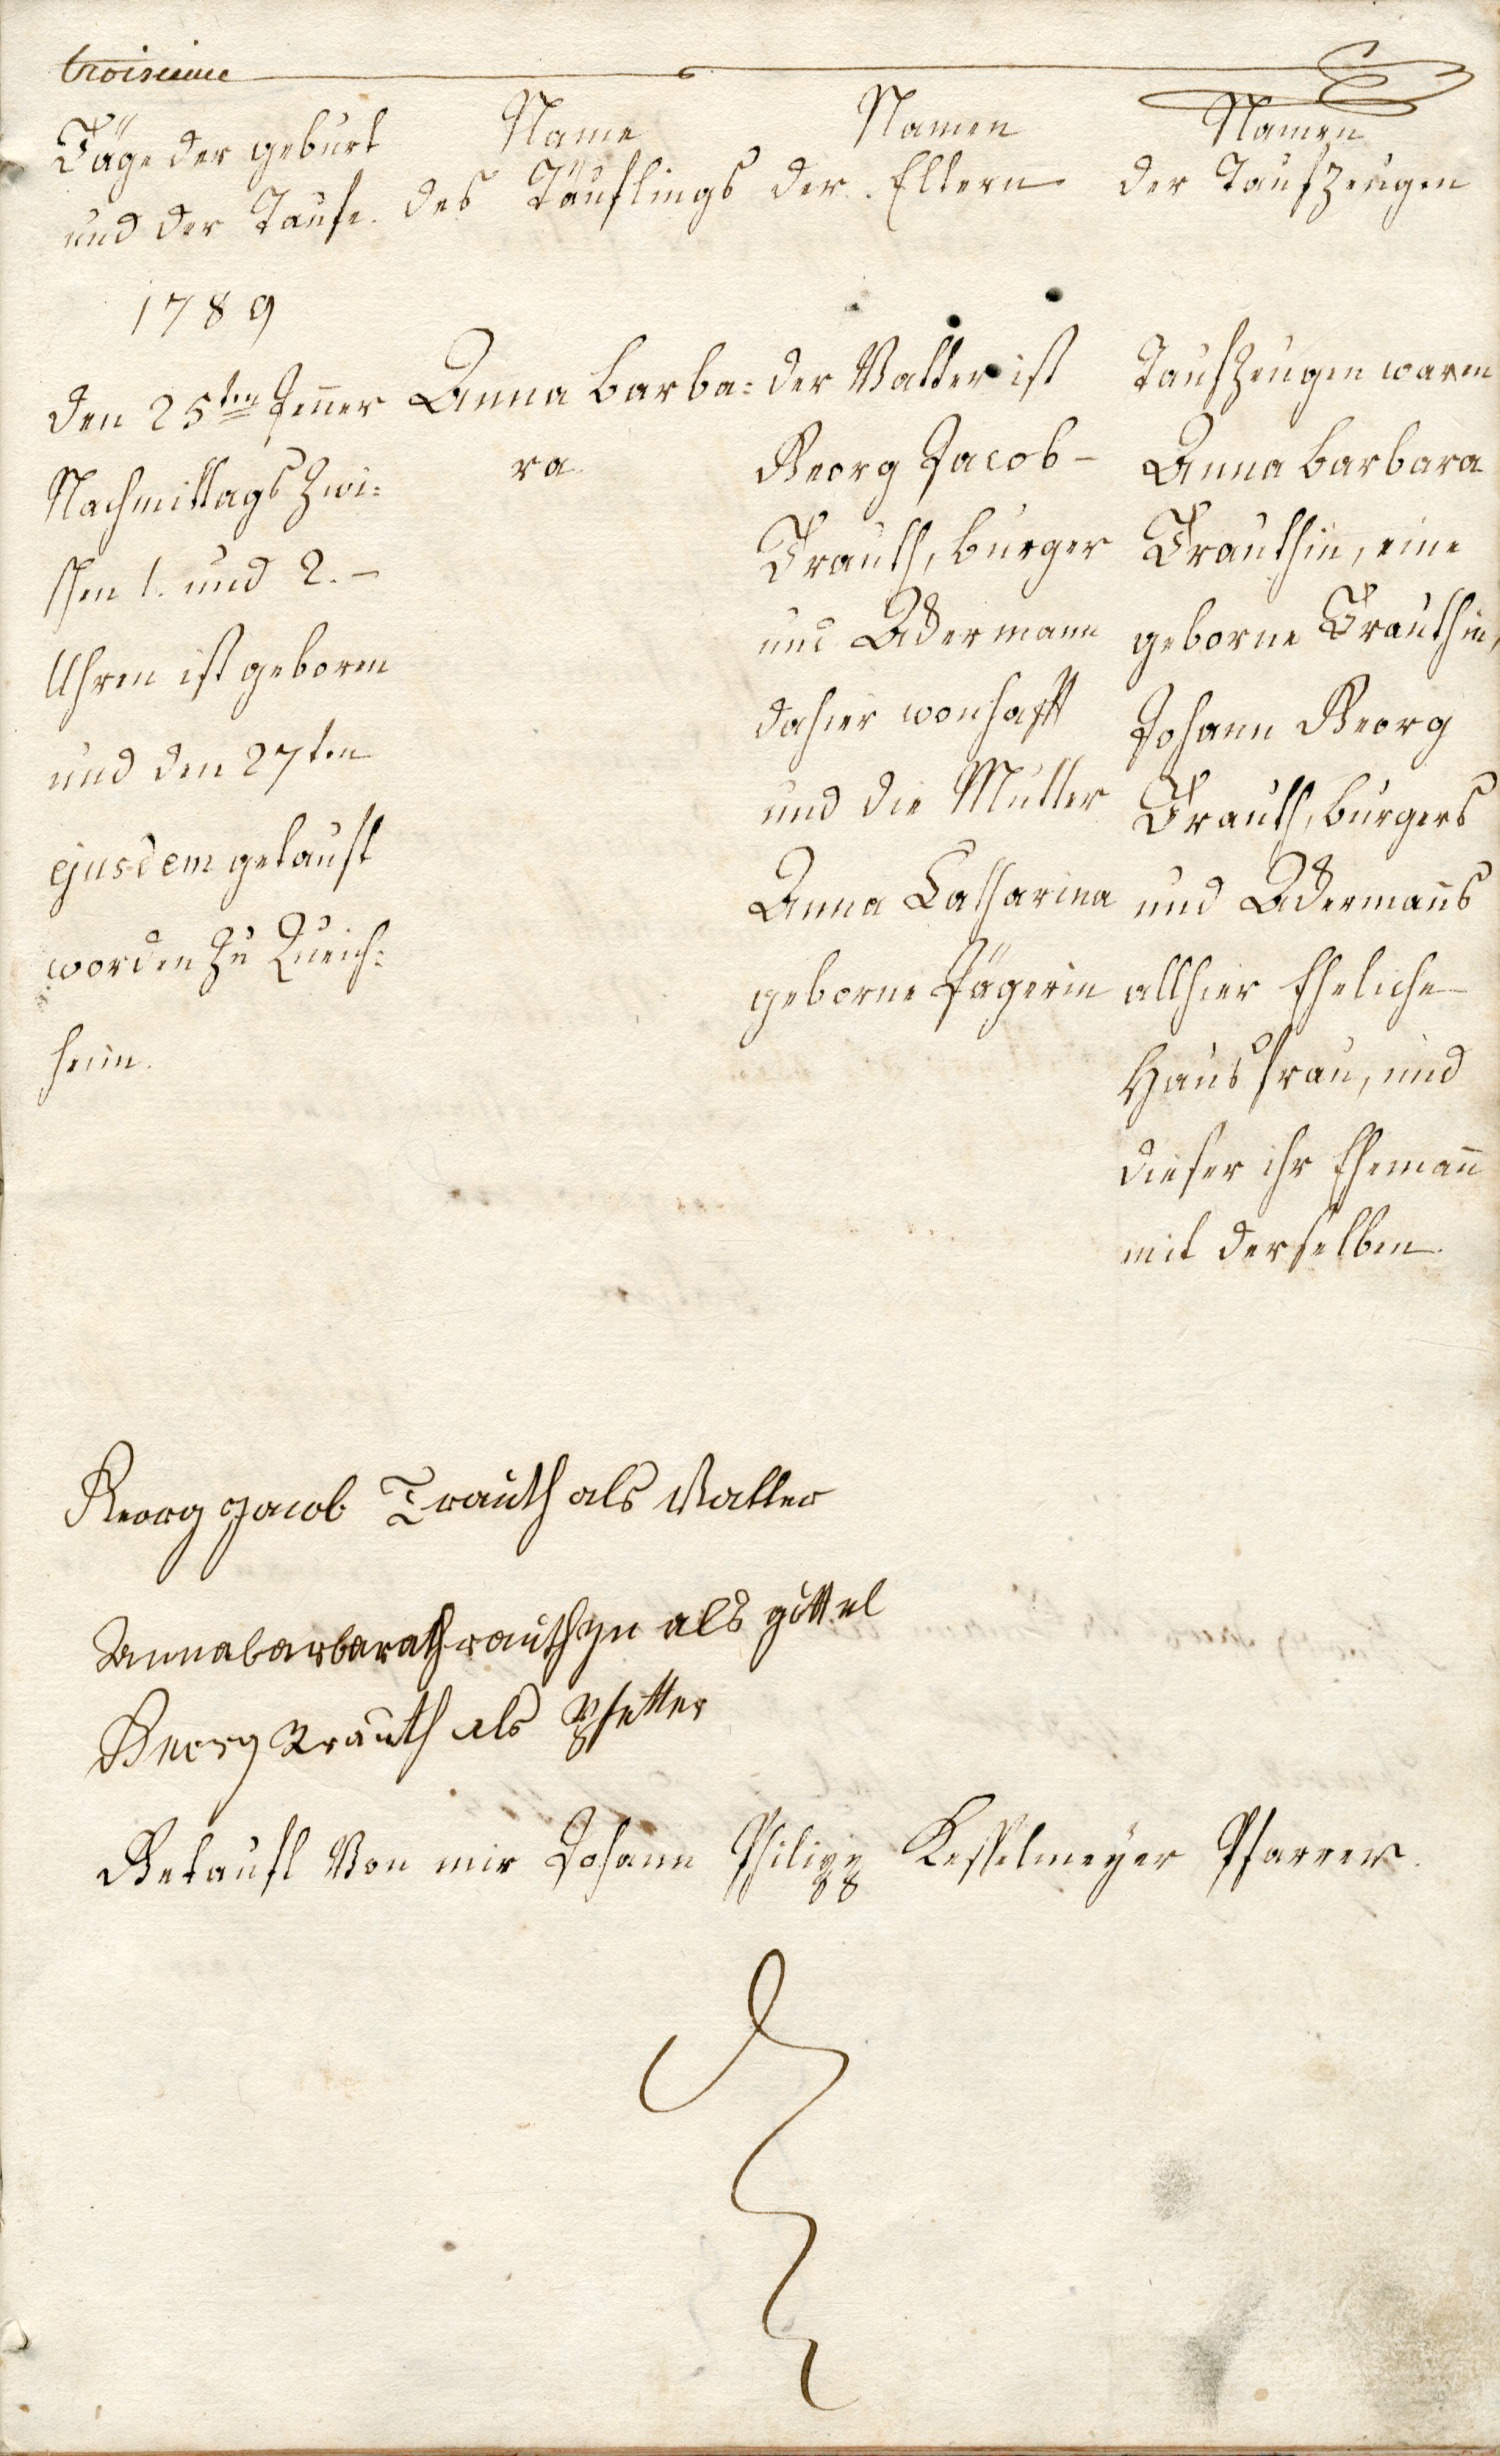 troisieme
Täge der geburt
und der Taufe.
Name
des Täuflings
Namen
der Eltern
Namen
der Taufzeugen
1789
den 25ten Jen̅er
Nachmittags Zwi:
schen 1. und 2. –
Uhren ist geboren
und den 27ten
ejusdem getauft
worden zu Queich:
heim.
Anna Barba:
ra.
der Vatter ist
Georg Jacob –
Trauth, burger
und Ackermann
dahier wonhafft
und die Mutter
Anna Catharina
geborne Jägerin
Taufzeugen waren
Anna Barbara
Trauthin, eine
geborne Trauthin,
Johann Georg
Trauth, burgers
und Ackerman̅s
allhier Eheliche
Hausfrau, und
dieser ihr Eheman̅
mit derselben.
Georg Jacob Trauth als Vatter
Annabarbarathrauthyn als göttel
Georg Trauth als Pfetter
Getauft Von mir Johann Philipp Kesselmeÿer Pfarrer.